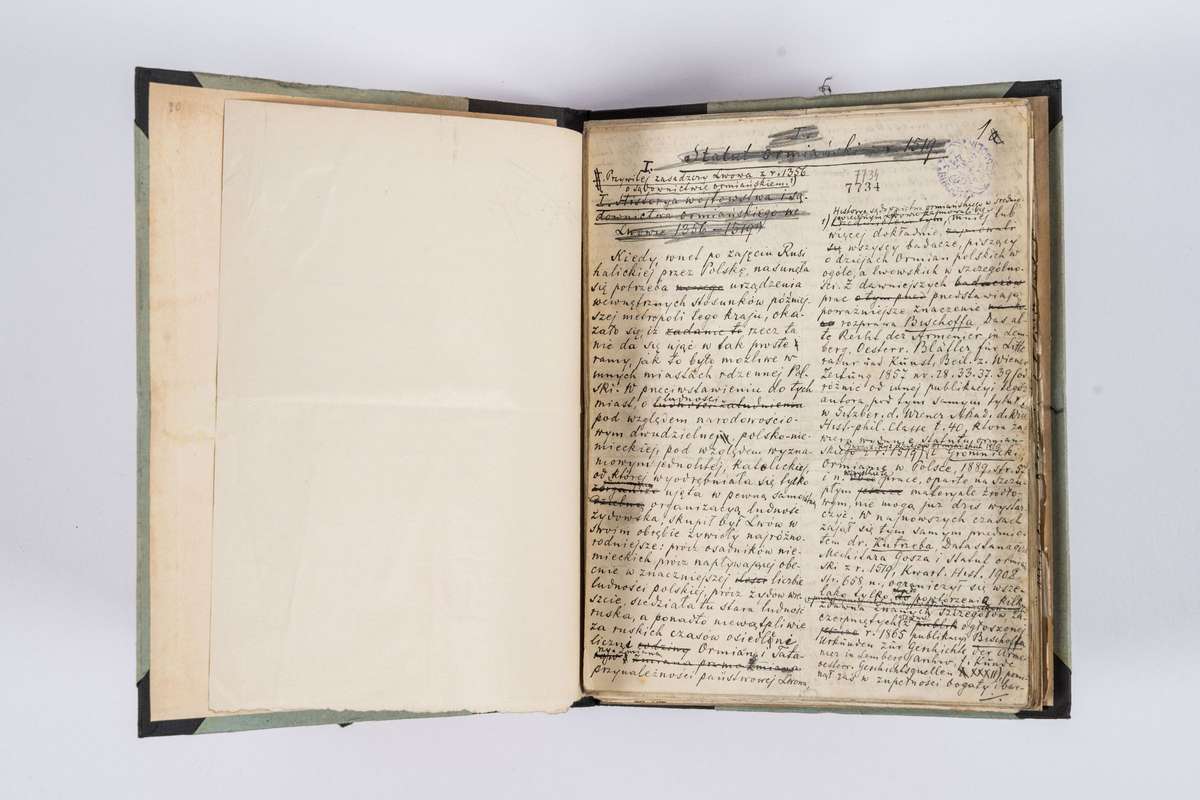 1a
I.
Statut ormiański z r. 1519
7734
7734
I.
1. Przywilej zasadźczy Lwowa z r. 1356
o sądownictwie ormiańskiem.
I. Historya wójtowstwa i są-
downictwa ormiańskiego we
Lwowie 1356–1519
Kiedy, wnet po zajęciu Rusi
halickiej przez Polskę, nasunęła
się potrzeba urządzenia
wewnętrznych stosunków później-
szej metropoli tego kraju, oka-
zało się, iż zadanie to rzecz ta
nie da się ująć w tak proste
ramy, jak to było możliwe w
innych miastach rdzennej Pol-
ski. W przeciwstawieniu do tych
miast, o ludności
pod względem narodowościo-
wym dwudzielnej, polsko-nie-
mieckiej, pod względem wyzna-
niowym jednolitej, katolickiej,
od której wyodrębniała się tylko
ujęta w pewną samoistną
organizacyą ludność
żydowska, skupił był Lwów w
swoim obrębie żywioły najróżno-
rodniejsze: prócz osadników nie-
mieckich, prócz napływającej obe-
cnie w znaczniejszej liczbie
ludności polskiej, prócz żydów wre-
szcie, siedziała tu stara ludność
ruska, a ponadto niewątpliwie
za ruskich czasów osiedleni
liczni Ormianie i Tata-
przynależności państwowej Lwowa,
Historyą sądownictwa ormiańskiego w
1) zajmowali się, mniej lub
więcej dokładnie,
się wszyscy badacze, piszący
o dziejach Ormian polskich w
ogóle, a lwowskich w szczególno-
ści. Z dawniejszych badaczów
prac przedstawiają
poważniejsze znaczenie
rozprawa Bischoffa, Das al-
te Recht der Armenier in Lem-
berg. Oesterr. Blätter für Litte-
ratur und Kunst, Beil. z. Wiener
Zeitung 1857 nr. 28. 33. 37. 39 (od-
różnić od innej publikacyi tegoż
autora pod tym samym tytuł.
w Sitzber. d. Wiener Akad. d. Wiss.
Hist.-phil. Classe t. 40, która za-
wiera wydanie Statutu ormiań-
skiego z r. 1519) i Gromnicki,
Ormianie w Polsce, 1889. str. 5
n. prace, oparte na szczu-
płym materyale źródło-
wym, nie mogą już dziś wystar-
czyć. W najnowszych czasach
zajął się tym samym przedmio-
tem dr. Kutrzeba, Datastanagirk
Mechitara Gosza i Statut ormiań-
ski z r. 1519, Kwart. Hist. 1908
str. 658 n., ograniczył się wsze-
lako tylko do powtórzenia kilku
zdawna znanych szczegółów za-
czerpniętych z ogłoszonej
r. 1865 publikacyi Bischoffa
Urkunden zur Geschichte der Arme-
nier in Lemberg (Archiv f. Kunde
oesterr. Geschichtsquellen XXXII), pomi-
nął zaś w zupełności bogaty i bar-